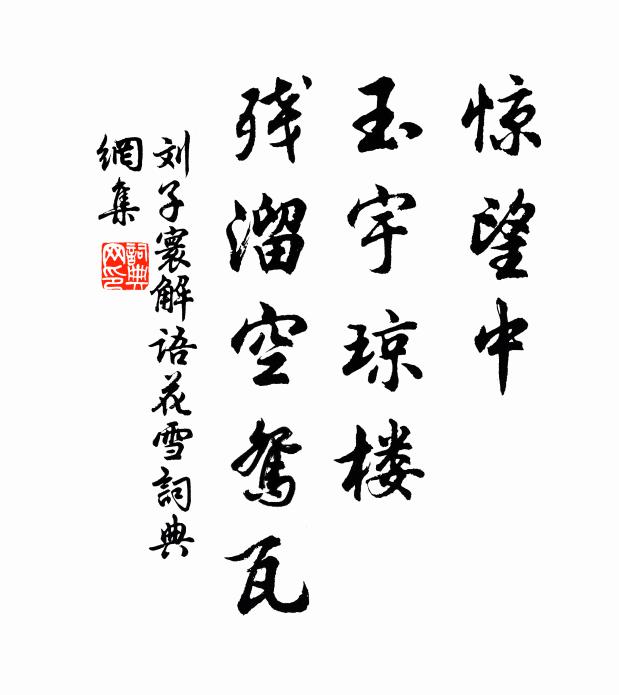 惊望中
玉宇琼楼
残溜空鸳瓦
刘子寰解语花雪詞典
網集
詞典网印